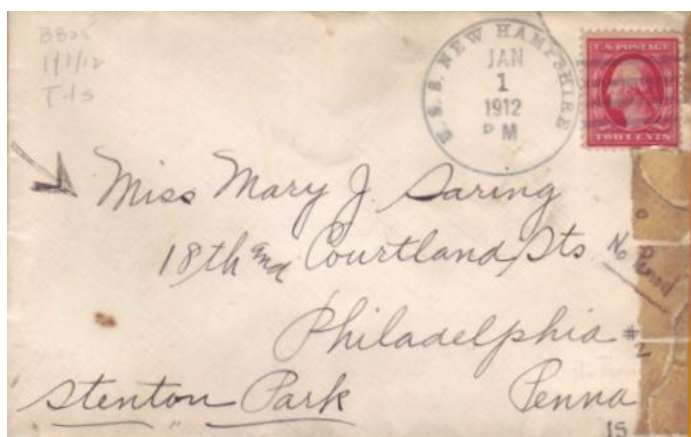 BB25
1/1/12
T-1s
U.S.S. NEW HAMPSHIRE
JAN
1
1912
PM
U.S. POSTAGE
TWO CENTS
Miss Mary J. Saring
18th and Courtland Sts.
No Period
Philadelphia
#2
Stenton Park
Penna
15